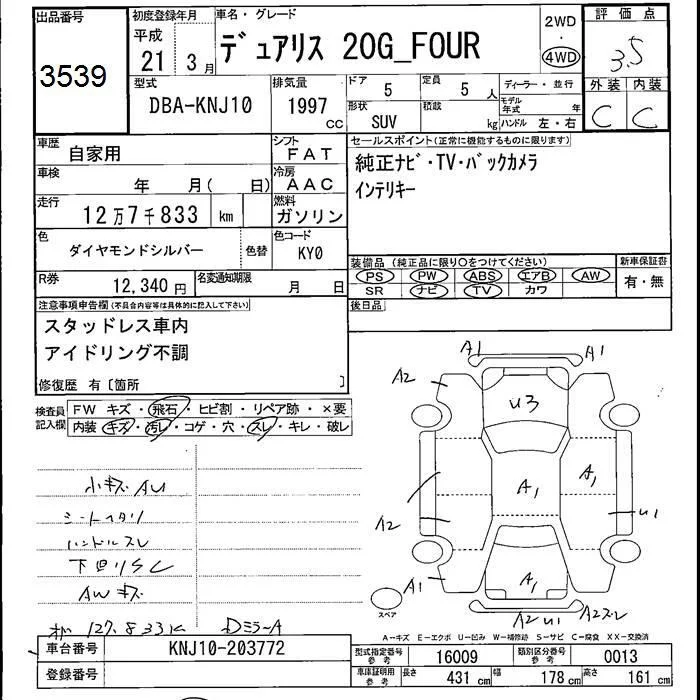 出品番号
3539
初度登録年月
平成
21 3月
車名・グレード
デュアリス 20G_FOUR
2WD
・
4WD
評価点
3.5
外装 内装
C C
型式
DBA-KNJ10
排気量
1997
CC
ドア
5
定員
5 人
形状
SUV
積載
kg
ディーラー・並行
モデル年式 年
ハンドル 左・右
車歴
自家用
シフト
FAT
車検
年 月( 日)
冷房
AAC
走行
12万7千833 km
燃料
ガソリン
色
ダイヤモンドシルバー
色替
色コード
KY0
R券
12,340円
名変通知期限
月 日
セールスポイント(正常に機能するものに限ります)
純正ナビ・TV・バックカメラ
インテリキー
装備品(純正品に限り○をつけてください)
PS PW ABS エアB AW
SR ナビ TV カワ
新車保証書
有・無
後日品
注意事項申告欄(不具合内容等は具体的に記入して下さい)
スタッドレス車内
アイドリング不調
修復歴 有〔箇所 〕
検査員記入欄
FW キズ・飛石・ヒビ割・リペア跡・×要
内装・キズ・汚レ・コゲ・穴・スレ・キレ・破レ
小キズ AU
シートヘタリ
ハンドルスレ
下回りSC
AWキズ
127.833K
DミラーA
A1 A1
A2
U3
A1
A1
A2
U1
A1
A1
A2 U1 A2スレ
スペア
A－キズ E－エクボ U－凹み W－補修跡 S－サビ C－腐食 XX－交換済
車台番号
KNJ10-203772
登録番号
型式指定番号 参考
16009
類別区分番号 参考
0013
車庫証明用 参考
長さ 431 cm
幅 178 cm
高さ 161 cm